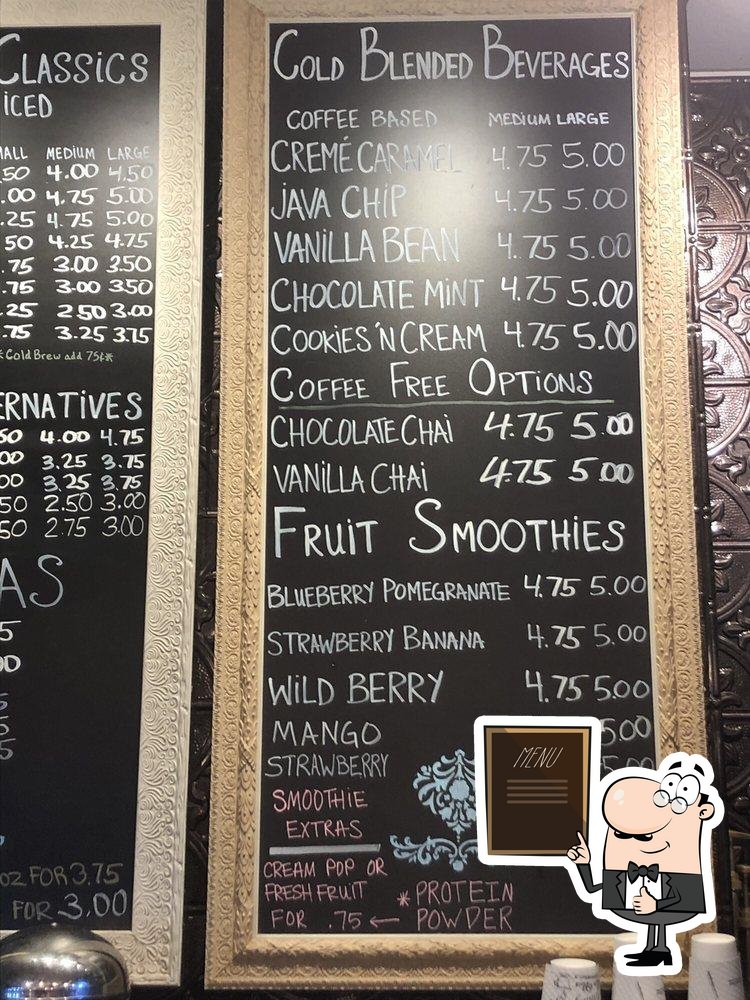 CLASSICS
ICED
MEDIUM LARGE
.50 4.00 4.50
.00 4.75 5.00
.25 4.75 5.00
50 4.25 4.75
.75 3.00 3.50
.75 3.00 3.50
.25 2.50 3.00
.75 3.25 3.75
*Cold Brew add 75¢*
ERNATIVES
50 4.00 4.75
00 3.25 3.75
00 3.25 3.75
50 2.50 3.00
50 2.75 3.00
AS
5
00
5
5
5
OZ FOR 3.75
FOR 3.00
COLD BLENDED BEVERAGES
COFFEE BASED MEDIUM LARGE
CREMÉ CARAMEL 4.75 5.00
JAVA CHIP 4.75 5.00
VANILLA BEAN 4.75 5.00
CHOCOLATE MINT 4.75 5.00
COOKIES 'N CREAM 4.75 5.00
COFFEE FREE OPTIONS
CHOCOLATE CHAI 4.75 5.00
VANILLA CHAI 4.75 5.00
FRUIT SMOOTHIES
BLUEBERRY POMEGRANATE 4.75 5.00
STRAWBERRY BANANA 4.75 5.00
WILD BERRY 4.75 5.00
MANGO 5.00
STRAWBERRY
SMOOTHIE
EXTRAS
CREAM POP OR
FRESH FRUIT
FOR .75 ← * PROTEIN
POWDER
MENU